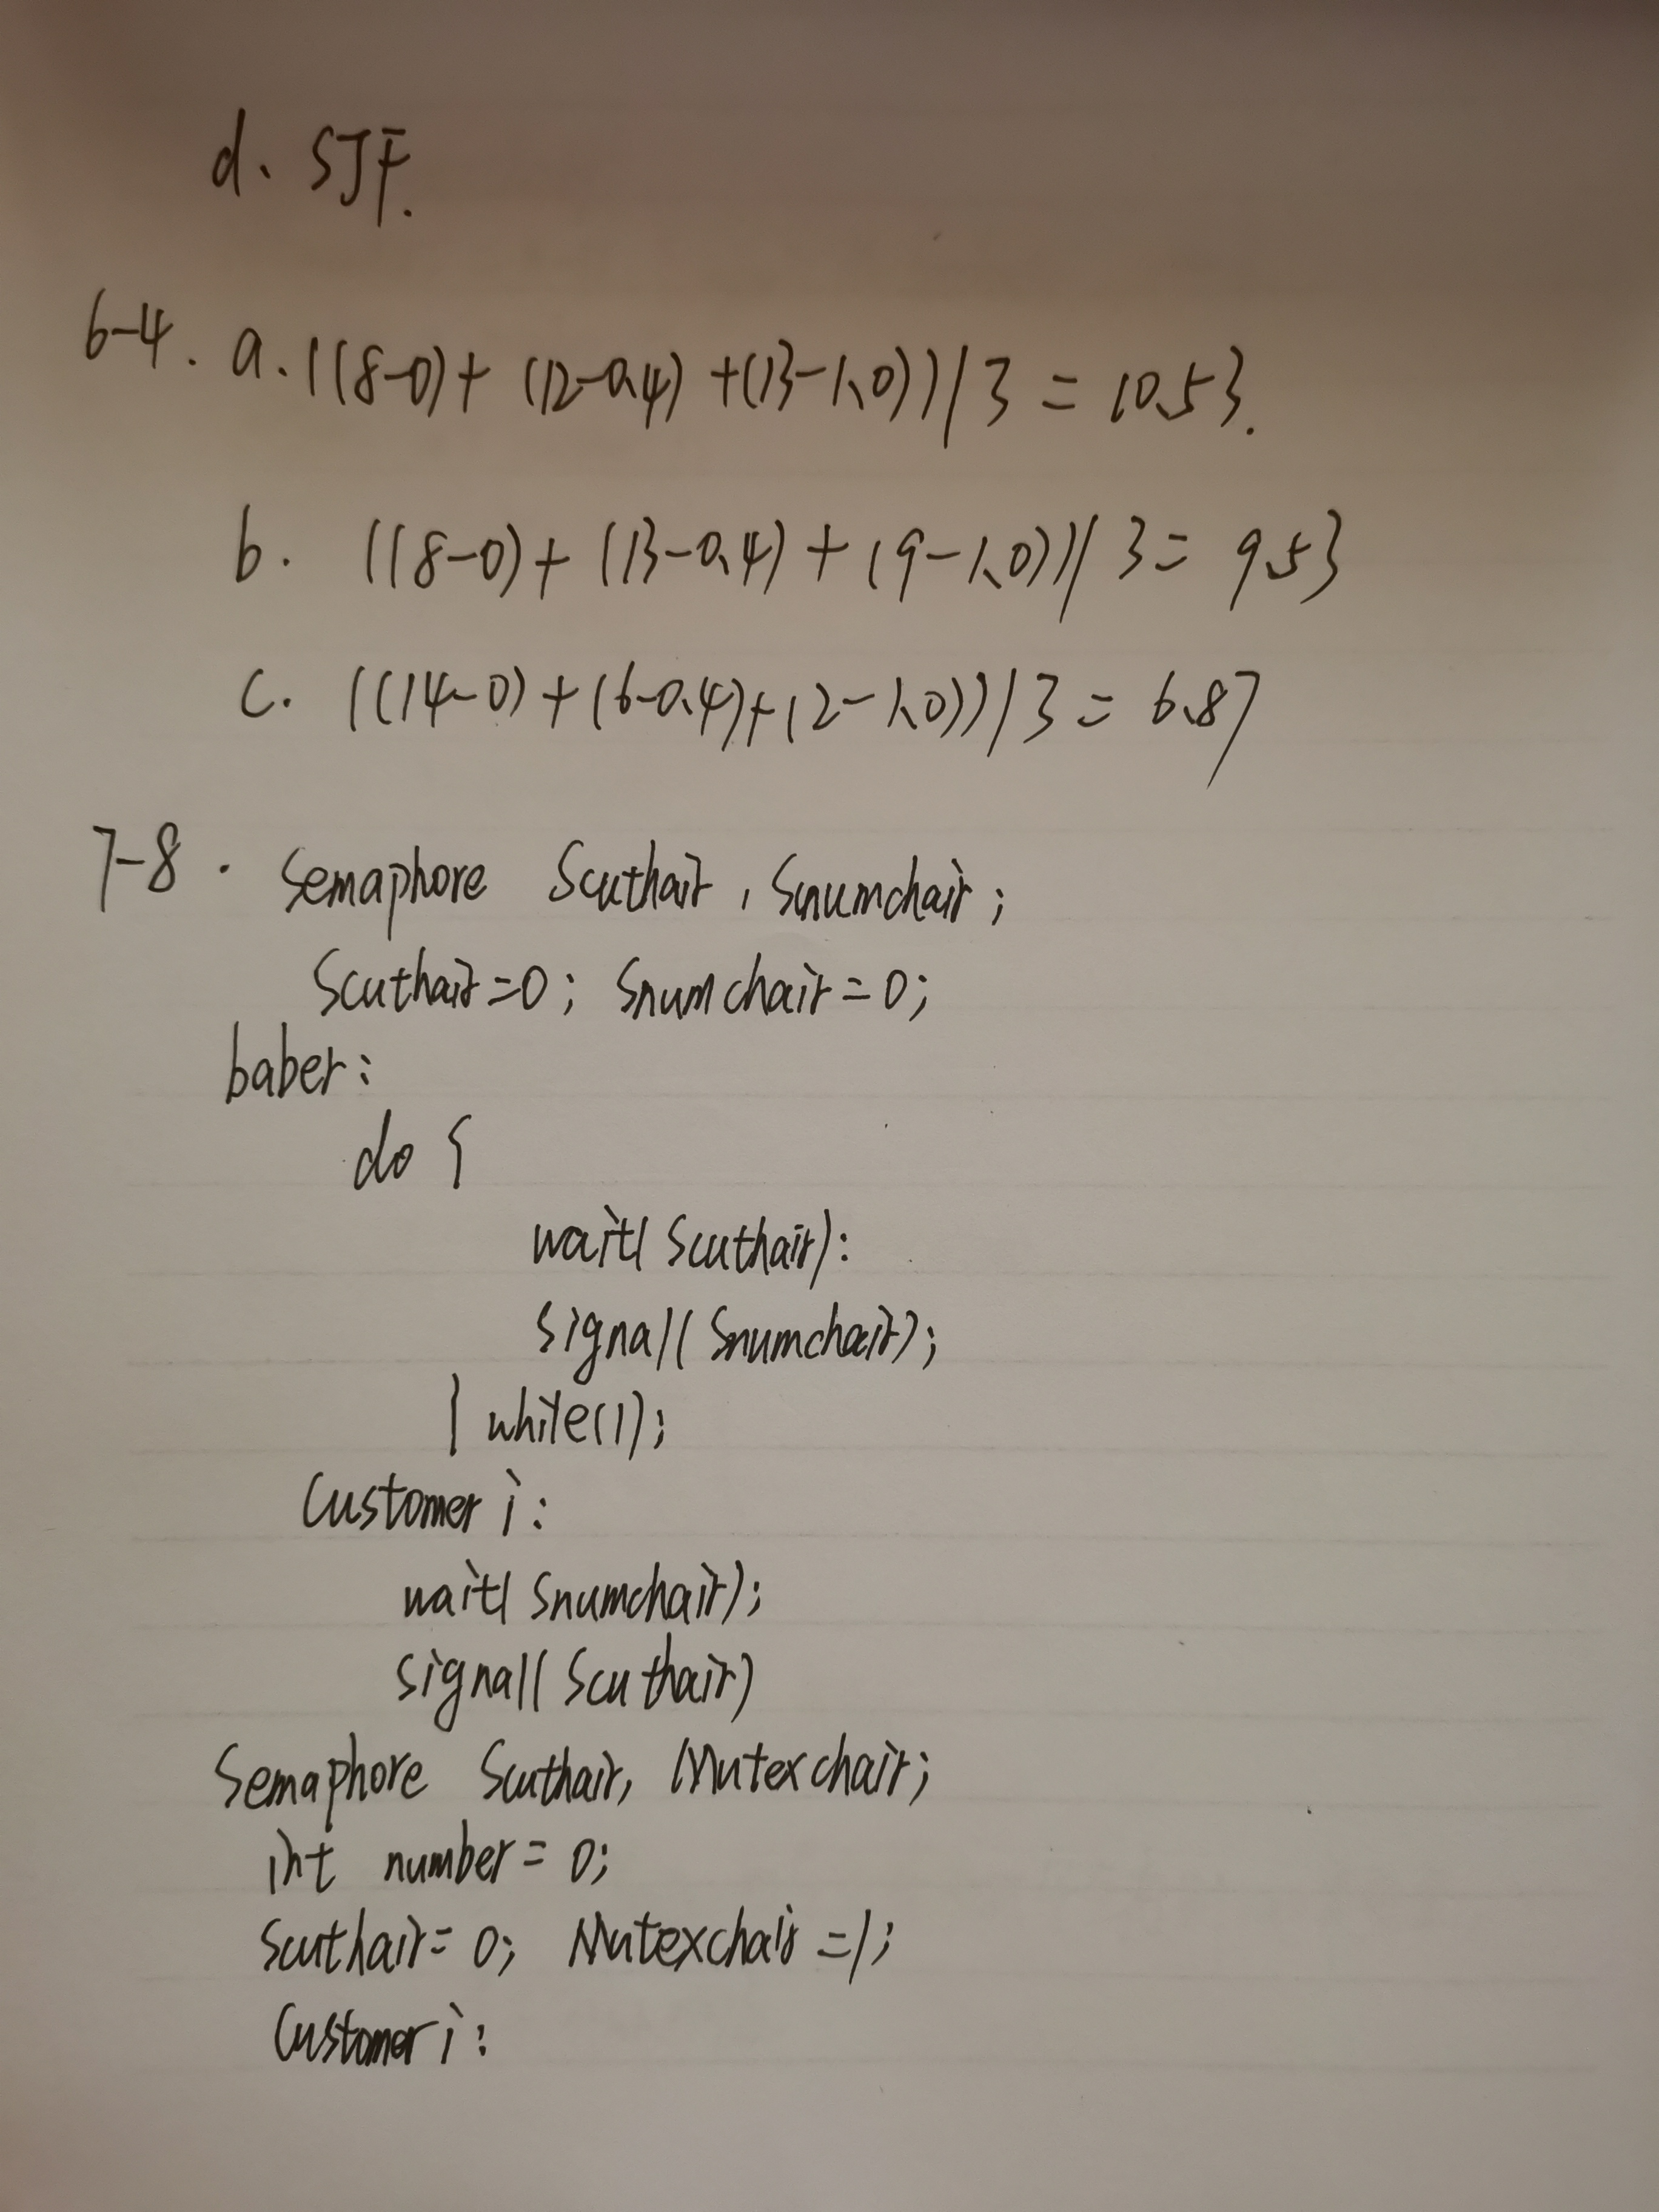 d、SJF.
6-4. a. ((8-0)+ (12-0.4) +(13-1.0))/3 = 10.53.
b. ((8-0)+ (13-0.4) + (9-1.0))/3= 9.53
c. ((14-0)+(6-0.4)+(2-1.0))/3 = 6.87
7-8. Semaphore Scuthair, Snumchair;
Scuthair=0; Snumchair=0;
baber:
do {
wait( Scuthair):
signal( Snumchair);
} while(1);
Customer i:
wait( Snumchair);
signal( Scuthair)
Semaphore Scuthair, Mutexchair;
int number= 0;
Scuthair= 0; Mutexchair =1;
Customer i: